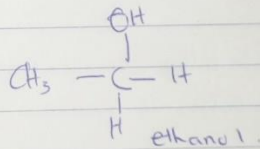 OH
CH₃ — C — H
H
ethanol.